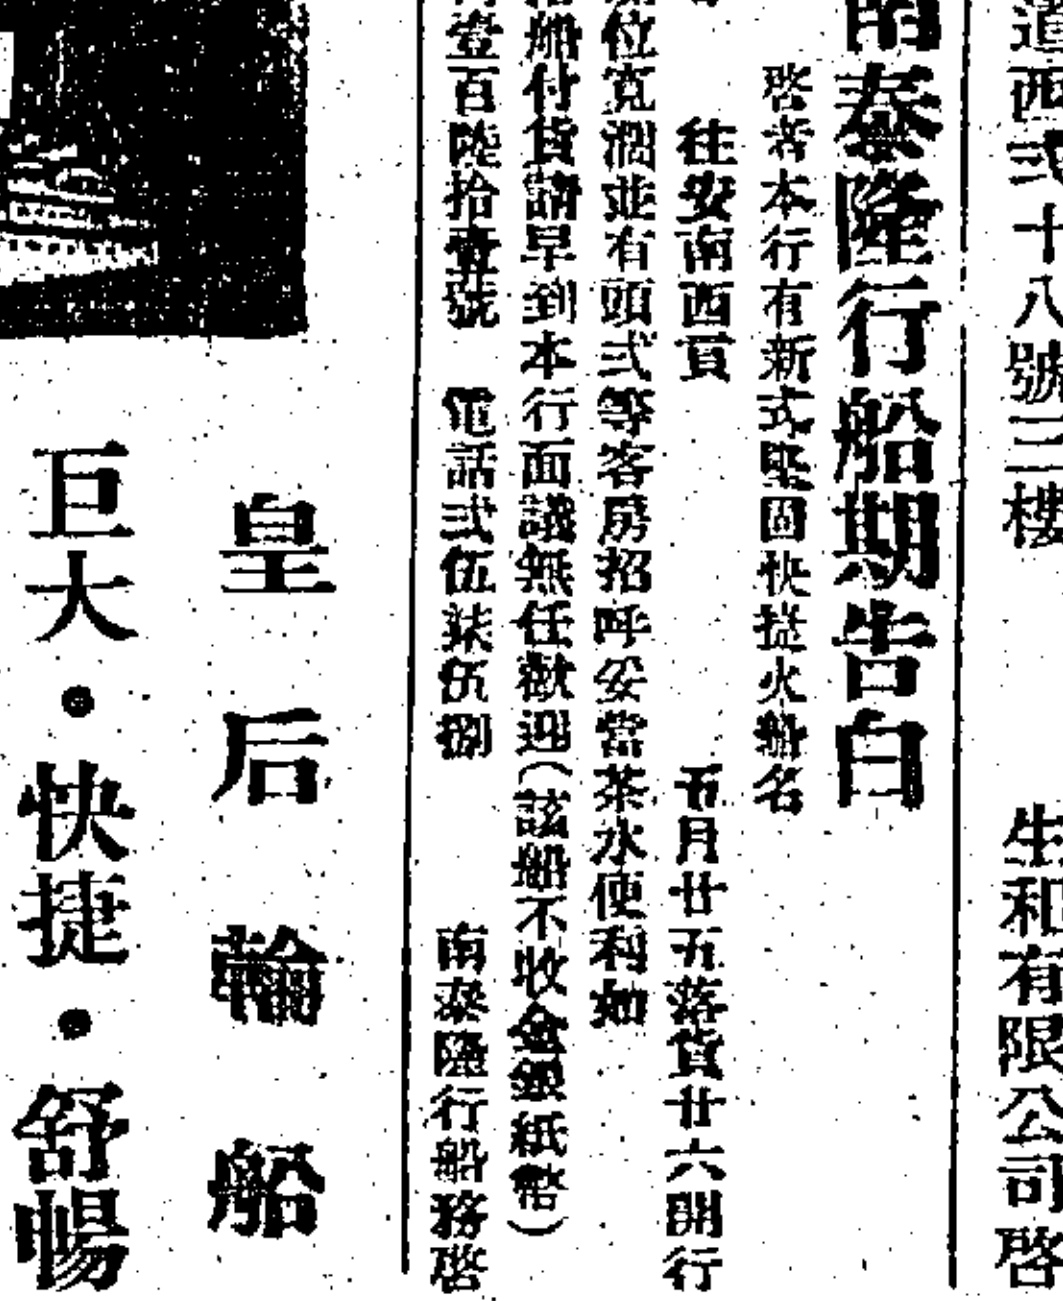 道西弍十八號三樓
生和有限公司啓
南泰隆行船期告白
啓者本行有新式堅固快捷火船名
往安南西貢
五月廿五落貨廿六開行
位寬濶並有頭弍等客房招呼妥當茶水便利如
船付貨請早到本行面議無任歡迎（該船不收金銀紙幣）
壹百陸拾壹號
電話弍伍柒伍捌
南泰隆行船務啓
皇后輪船
巨大・快捷・舒暢